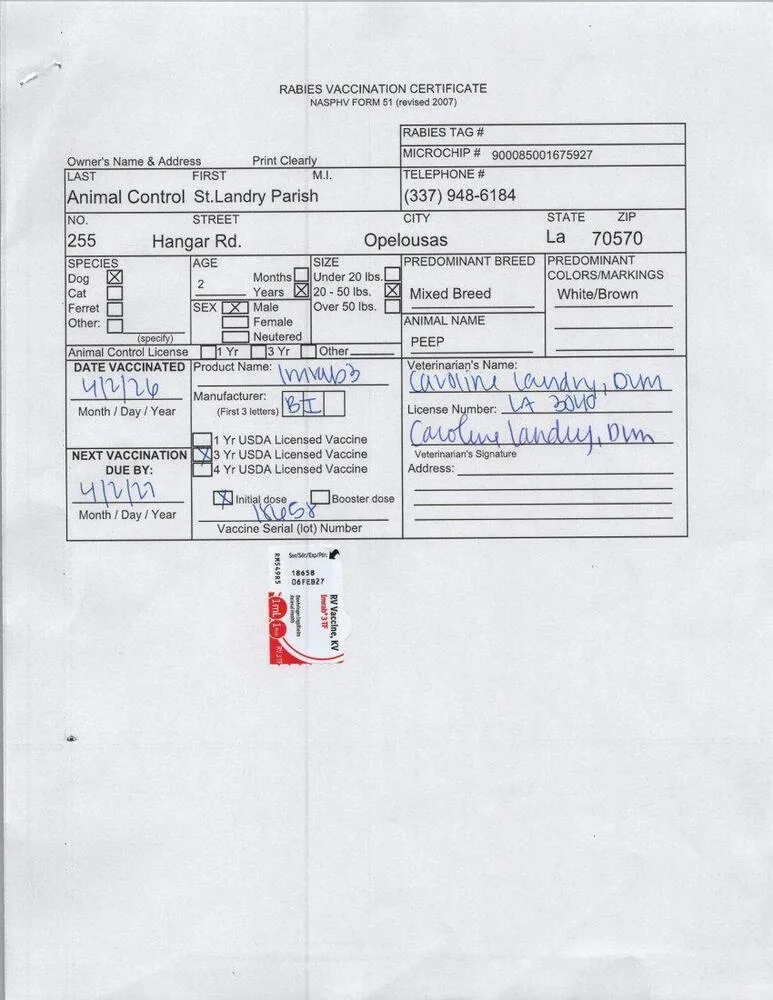 RABIES VACCINATION CERTIFICATE
NASPHV FORM 51 (revised 2007)
RABIES TAG #
MICROCHIP # 900085001675927
Owner's Name & Address Print Clearly
LAST FIRST M.I. TELEPHONE #
Animal Control St.Landry Parish (337) 948-6184
NO. STREET CITY STATE ZIP
255 Hangar Rd. Opelousas La 70570
SPECIES AGE SIZE PREDOMINANT BREED PREDOMINANT
COLORS/MARKINGS
Dog X 2 Months Under 20 lbs.
Cat Years X 20 - 50 lbs. X Mixed Breed White/Brown
Ferret SEX X Male Over 50 lbs.
Other: Female ANIMAL NAME
(specify) Neutered PEEP
Animal Control License 1 Yr 3 Yr Other
DATE VACCINATED Product Name: Imrab3 Veterinarian's Name:
4/2/26 Caroline Landry, DVM
Month / Day / Year Manufacturer: BI License Number: LA 3040
(First 3 letters)
1 Yr USDA Licensed Vaccine Caroline Landry, DVM
NEXT VACCINATION X 3 Yr USDA Licensed Vaccine Veterinarian's Signature
DUE BY: 4 Yr USDA Licensed Vaccine Address:
4/2/27 X Initial dose Booster dose
Month / Day / Year 18658
Vaccine Serial (lot) Number
Ser/Sér/Exp/Pér:
18658
06FEB27
RM549R5
RV Vaccine, KV
Imrab® 3 TF
Boehringer Ingelheim
Animal Health
1mL 1